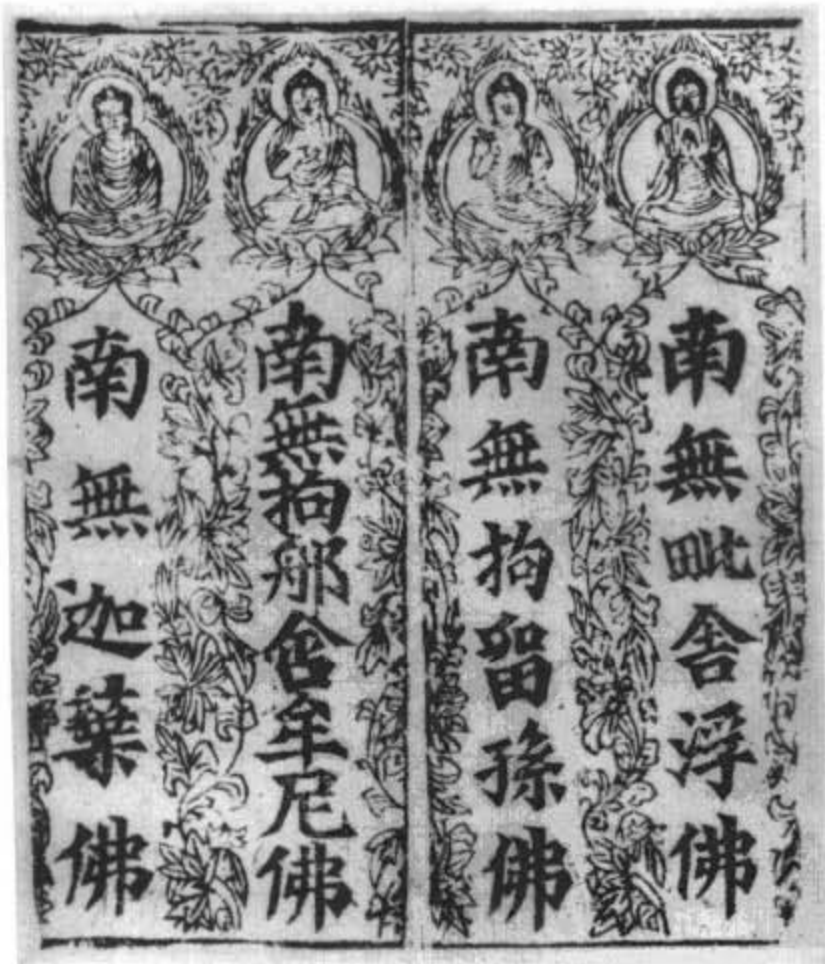 南無毗舍浮佛
南無拘留孫佛
南無拘那含牟尼佛
南無迦葉佛